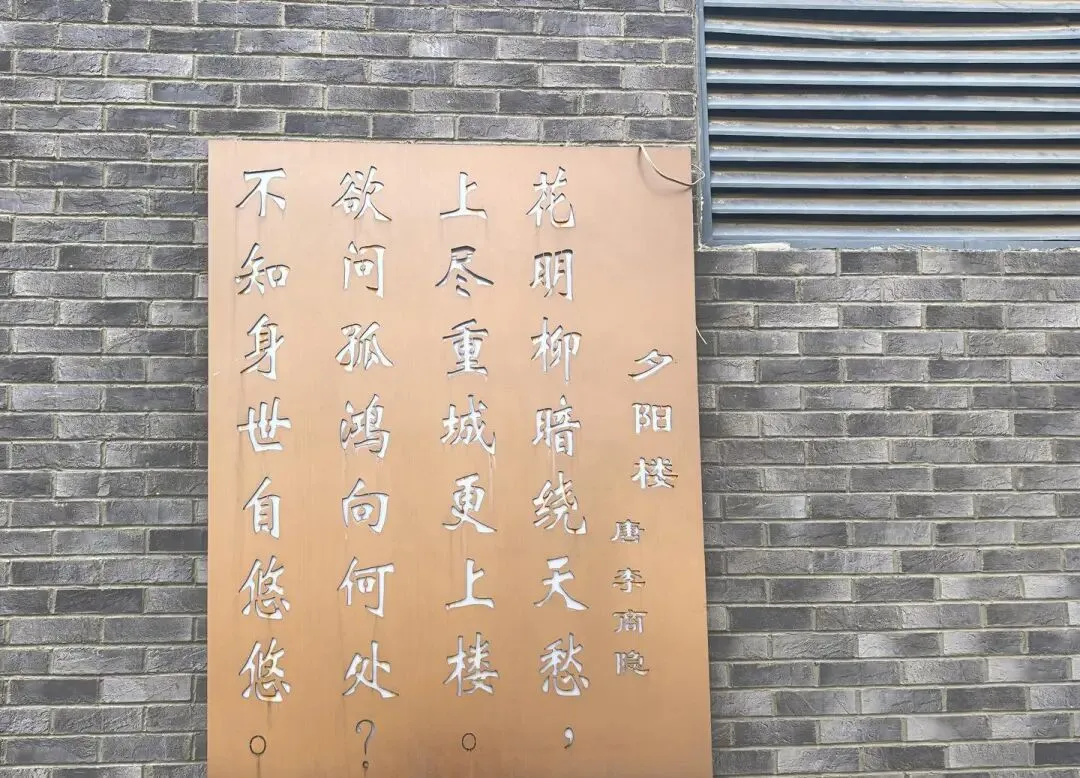 夕阳楼
唐 李商隐
花明柳暗绕天愁，
上尽重城更上楼。
欲问孤鸿向何处？
不知身世自悠悠。